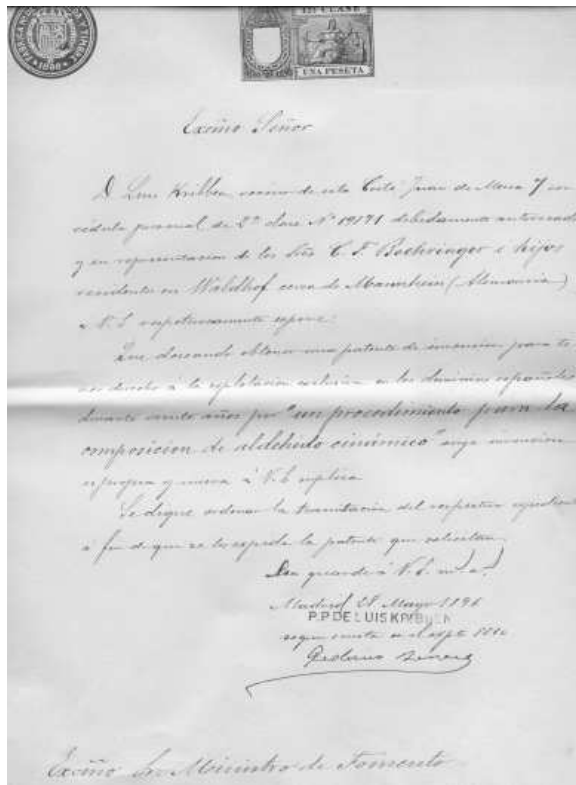 FABRICA NACIONAL DE MONEDA Y TIMBRE
1896
12ª CLASE
UNA PESETA
Excmo Señor
D. Luis Kribben, vecino de esta Corte Juan de Mena 7 con
cédula personal de 2ª clase Nº 19171 debidamente autorizado
y en representacion de los Sres C. F. Boehringer e hijos
residentes en Waldhof cerca de Mannheim (Alemania)
a V.E. respetuosamente expone:
Que deseando obtener una patente de invencion para te
ner derecho à la esplotacion exclusiva en los dominios españoles
durante veinte años por "un procedimiento para la
composicion de aldehedo cinámico" cuya invencion
es propia y nueva à V.E. suplica
Se digne ordenar la tramitacion del respectivo expediente
á fin de que se les expida la patente que solicitan.
Dios guarde à V.E. m. a.
Madrid 28 Mayo 1896
P.P DE LUIS KRIBBEN
segun consta en el expte
Excmo Sr Ministro de Fomento